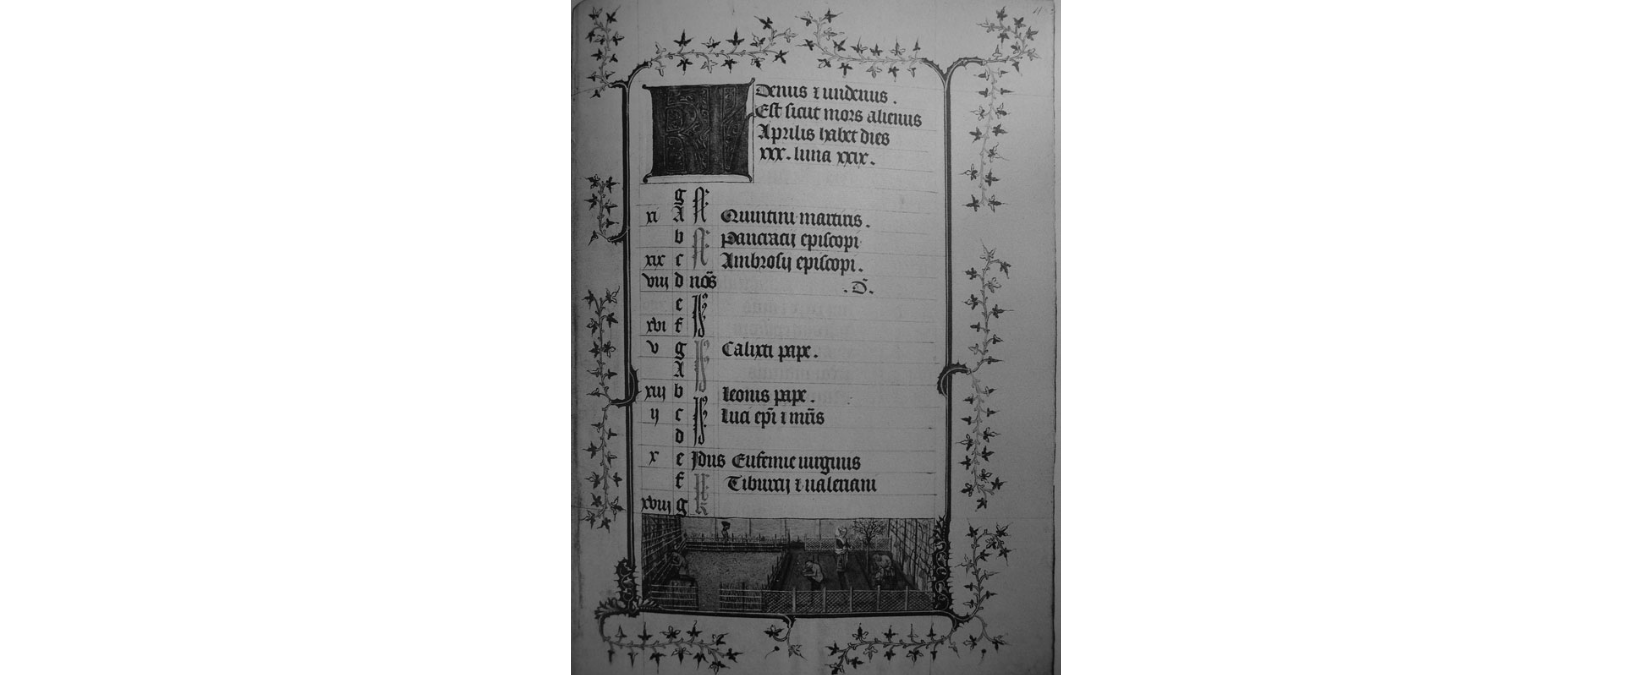 KL Denus ⁊ undenus .
Est sicut mors alienus
Aprilis habet dies
xxx . luna xxix .
g
xi A Quintini martiris .
b Pancracij episcopi
xix c Ambrosij episcopi .
viij d nōs . D̄ .
e
xvi f
v g Calixti pape .
A
xiij b Leonis pape .
ij c Luci ep̄i ⁊ mr̄is
d
x e Idus Eufemie uirginis
f Tiburcij ⁊ ualeriani
xviij g kł